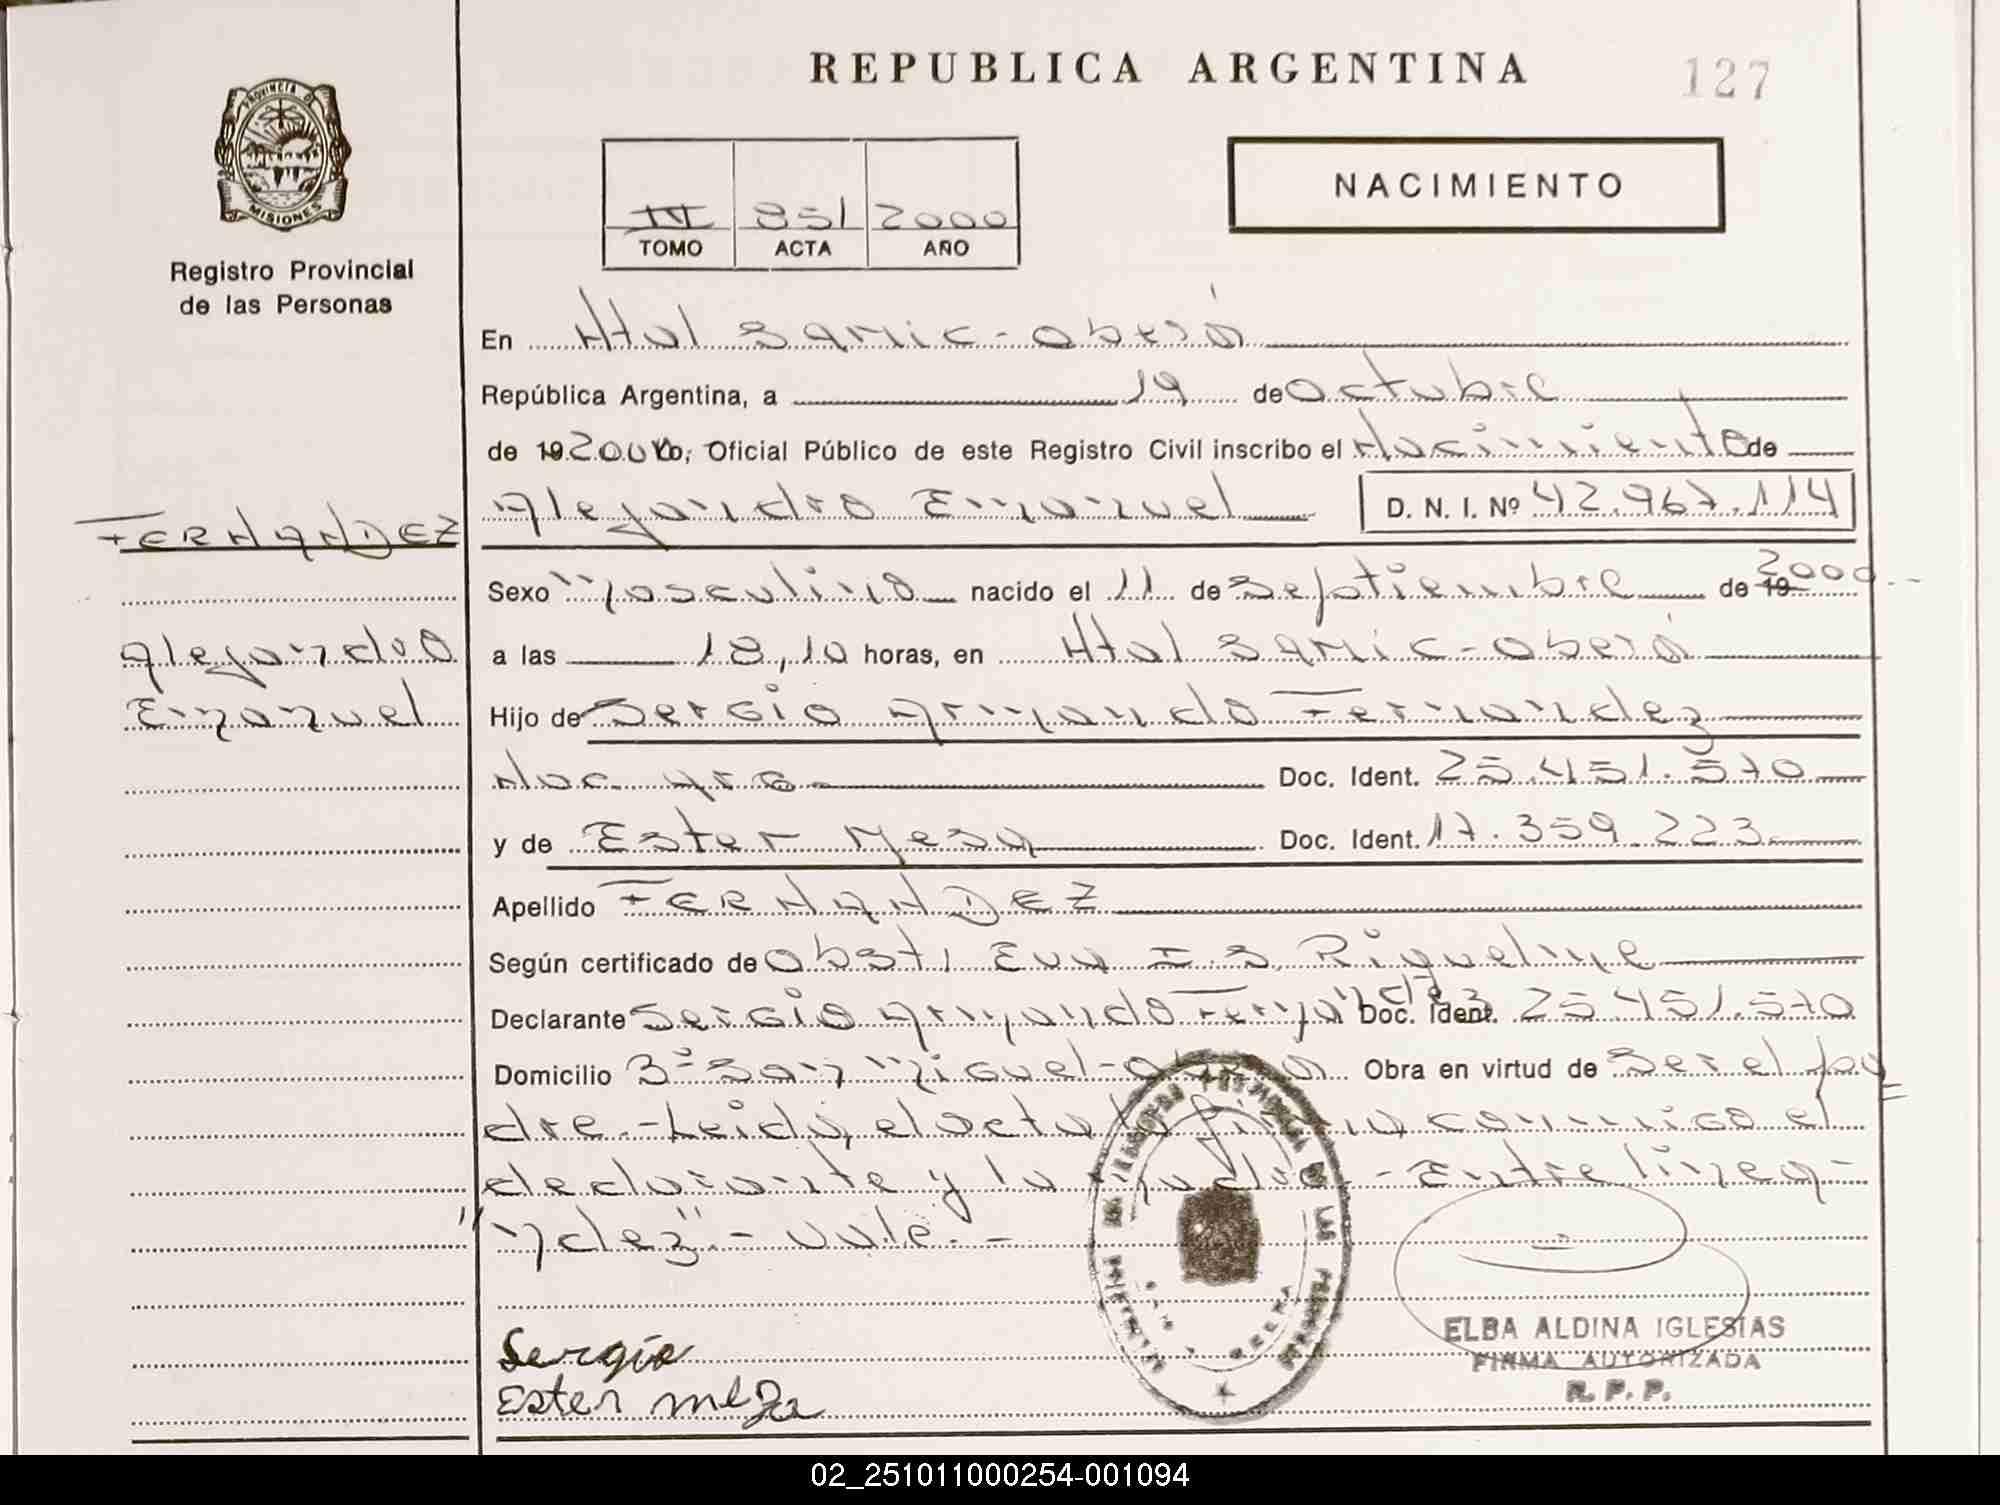 REPUBLICA ARGENTINA
127
PROVINCIA DE
MISIONES
Registro Provincial
de las Personas
IV 851 2000
TOMO ACTA AÑO
NACIMIENTO
En Htal SAMIC - Oberá
República Argentina, a 19 de Octubre
de 19 2000, Oficial Público de este Registro Civil inscribo el Nacimiento de
Alejandro Emanuel D. N. I. Nº 42.967.114
FERNANDEZ
Sexo Masculino nacido el 11 de Septiembre de 19 2000
Alejandro
a las 18,10 horas, en Htal SAMIC - Oberá
Emanuel
Hijo de Sergio Armando Fernandez
Nac. Arg. Doc. Ident. 25.451.570
y de Ester Mesa Doc. Ident. 17.359.223
Apellido FERNANDEZ
Según certificado de Obst. Eva I. S. Riquelme
Declarante Sergio Armando Fernandez Doc. Ident. 25.451.570
Domicilio Bº San Miguel - Oberá Obra en virtud de Ser el pa
dre.- Leida, el acta la firma conmigo el
declarante y la madre.- Entre linea-
"ndez".- vale.-
ELBA ALDINA IGLESIAS
FIRMA AUTORIZADA
R. P. P.
Sergio
Ester meza
02_251011000254-001094